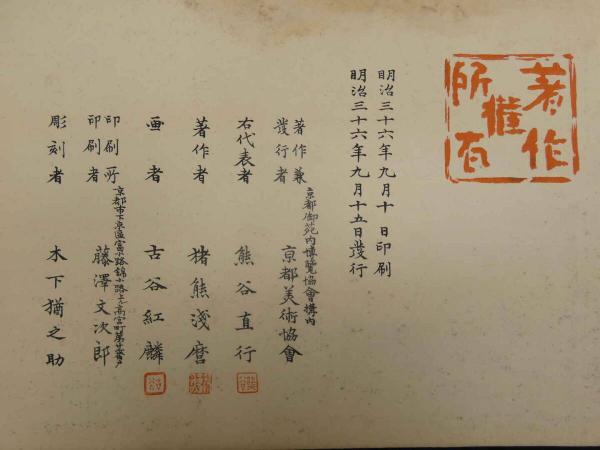 著作
権
所有
明治三十六年九月十日印刷
明治三十六年九月十五日發行
著作兼
發行者
京都御苑内博覧協會構内
京都美術協會
右代表者 熊谷直行
著作者 猪熊浅麿
画者 古谷紅麟
印刷所
京都市下京區富小路錦小路上ル高宮町
印刷者 藤澤文次郎
彫刻者 木下猶之助